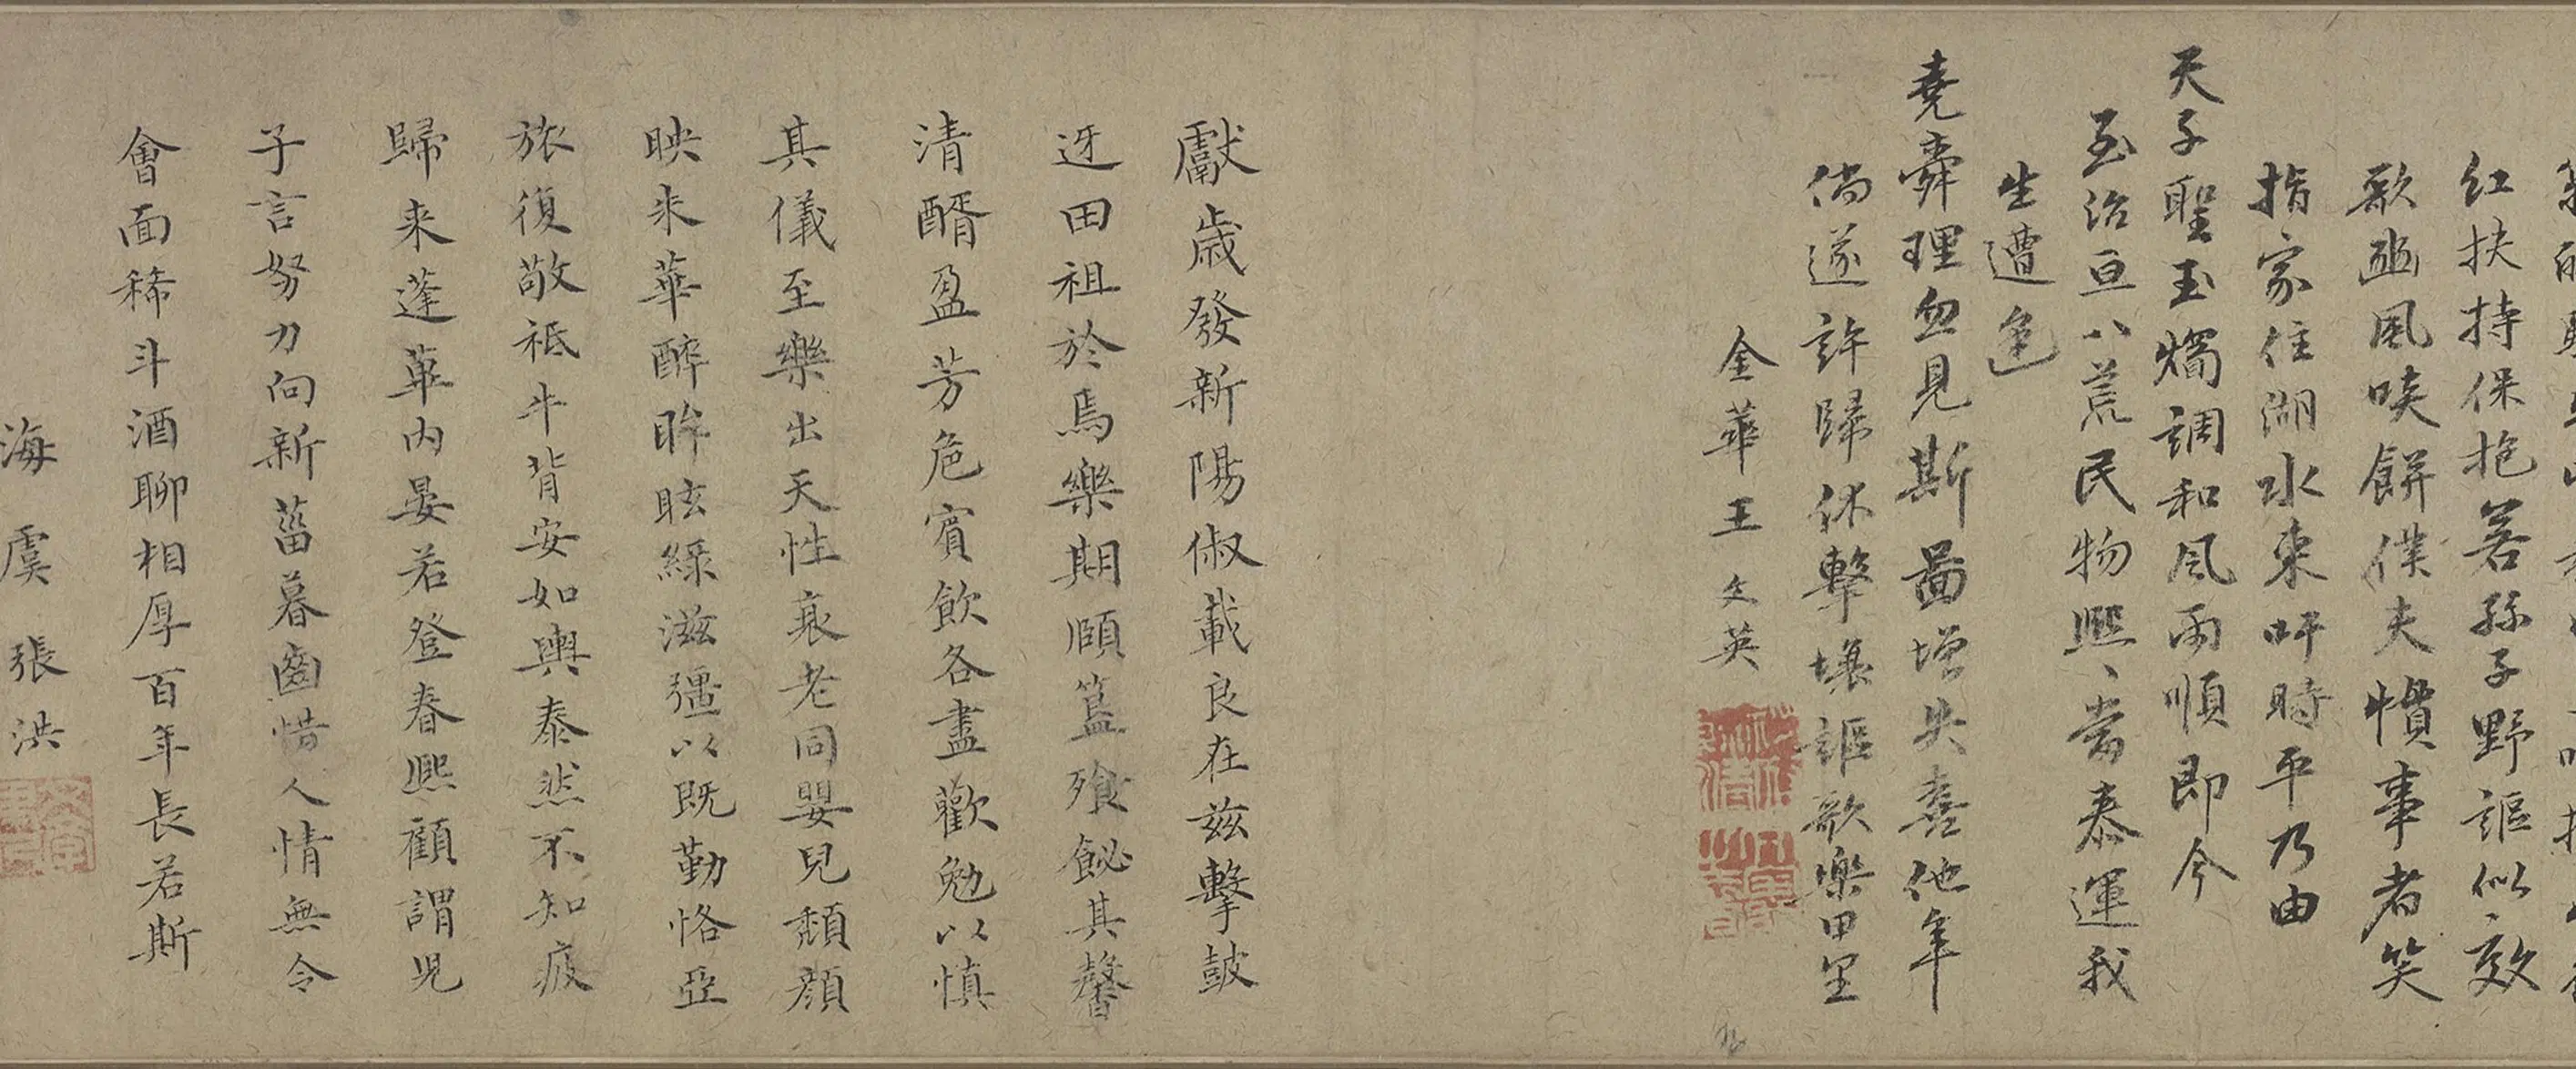 紅扶持保抱若孫子野謳似〻效
歌豳風啖餅僕夫慣事者笑
指家住湖水東吁時平乃由
天子聖玉燭調和風雨順即今
至治亘八荒民物熙〻當泰運我
生遭逢
堯舜理忽見斯圖增失喜他年
倘遂許歸休擊壤謳歌樂田里
金華王文英
獻歲發新陽俶載良在兹擊鼓
迓田祖於焉樂期頤簋飱飶其馨
清醑盈芳巵賓飲各盡歡勉以慎
其儀至樂出天性衰老同嬰兒頹顏
映來華醉眸眩綠滋彊以既勤恪亞
旅復敬祗牛背安如輿泰然不知疲
歸來蓬蓽內晏若登春熙顧謂兒
子言努力向新菑暮齒惜人情無令
會面稀斗酒聊相厚百年長若斯
海虞張洪